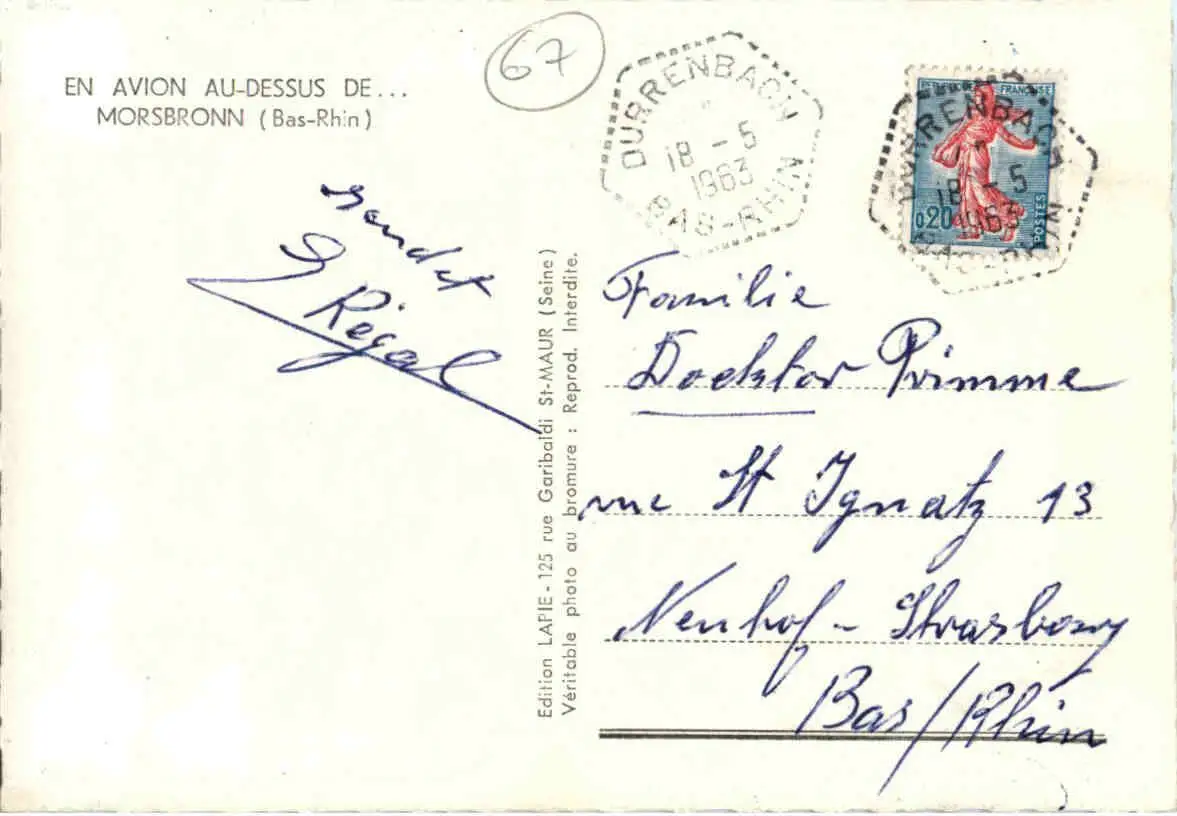 EN AVION AU-DESSUS DE...
MORSBRONN (Bas-Rhin)
67
DURRENBACH
18 - 5
1963
BAS-RHIN
FRANÇAISE
0,20
POSTES
DURRENBACH
18 - 5
1963
BAS-RHIN
Régal
Edition LAPIE - 125 rue Garibaldi St-MAUR (Seine)
Véritable photo au bromure : Reprod. Interdite.
Familie
Docktor Primme
rue St Ignatz 13
Neuhof - Strasbourg
Bas/Rhin